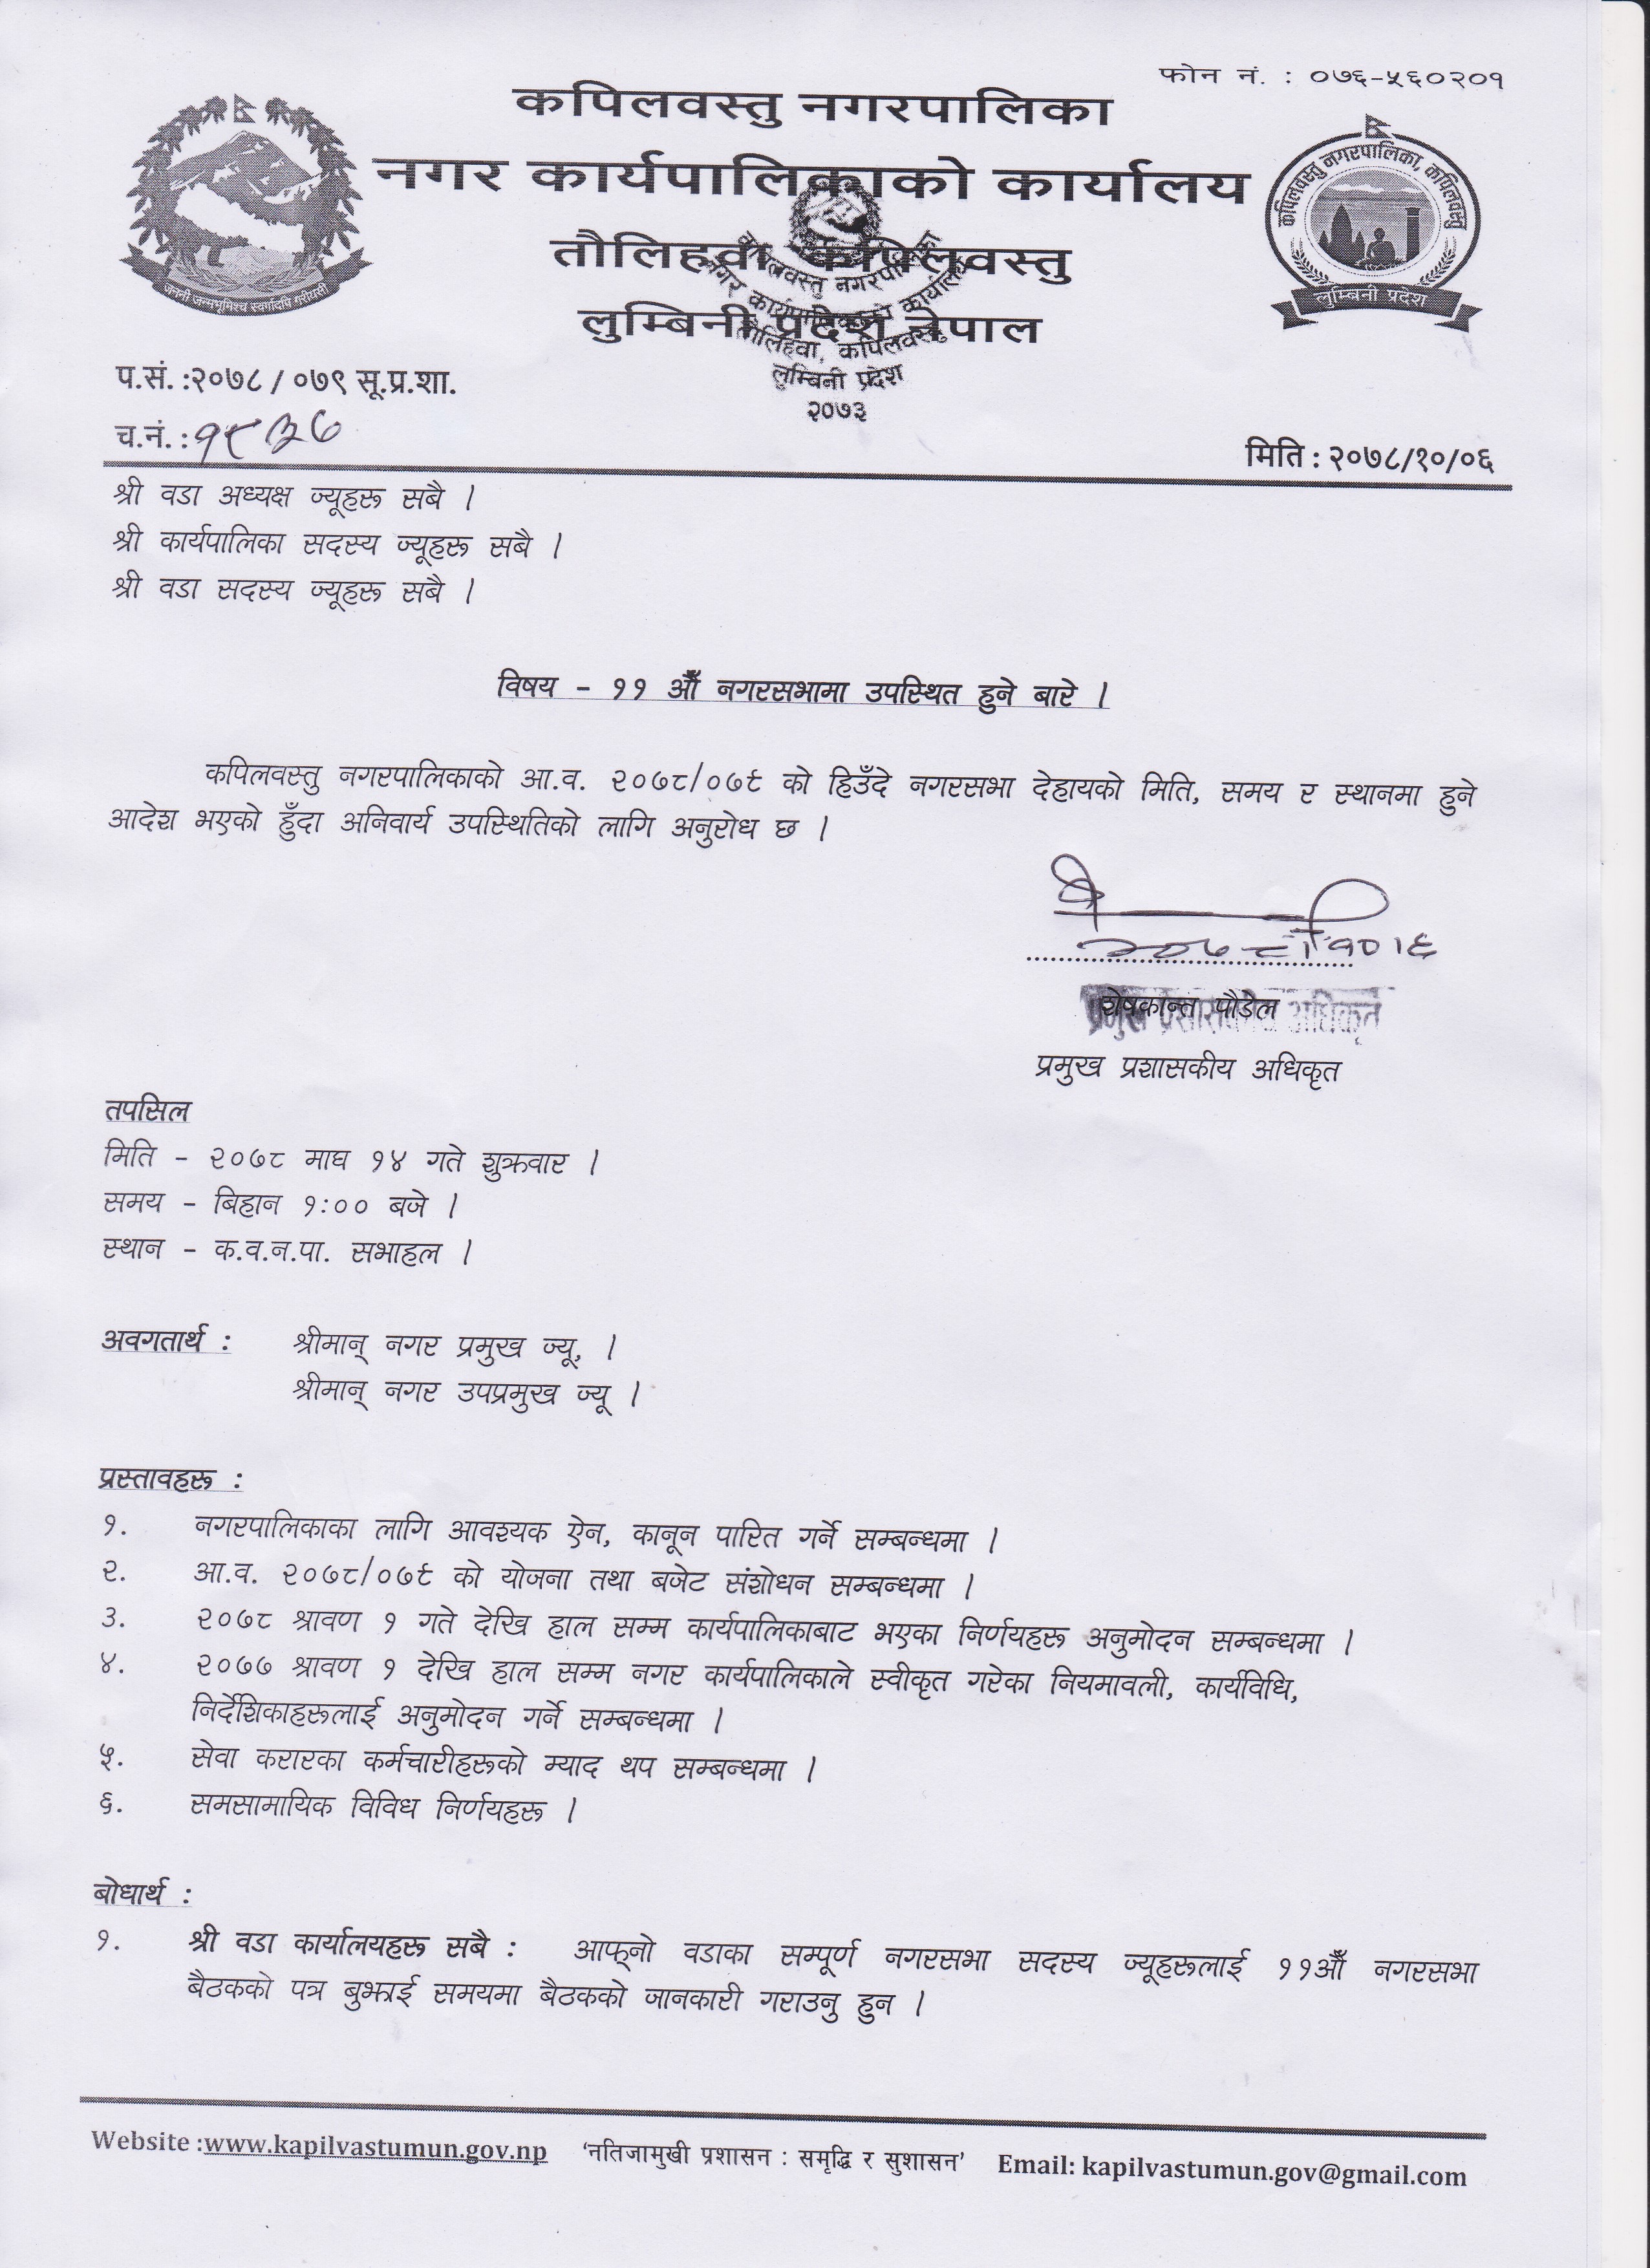 फोन नं. : ०७६-५६०२०१
कपिलवस्तु नगरपालिका
नगर कार्यपालिकाको कार्यालय
तौलिहवा कपिलवस्तु
लुम्बिनी प्रदेश नेपाल
जननी जन्मभूमिश्च स्वर्गादपि गरीयसी
कपिलवस्तु नगरपालिका, कपिलवस्तु
लुम्बिनी प्रदेश
कपिलवस्तु नगरपालिका
नगर कार्यपालिकाको कार्यालय
तौलिहवा, कपिलवस्तु
लुम्बिनी प्रदेश
२०७३
प.सं. :२०७८ / ०७९ सू.प्र.शा.
च.नं. :
मिति : २०७८/१०/०६
श्री वडा अध्यक्ष ज्यूहरू सबै ।
श्री कार्यपालिका सदस्य ज्यूहरू सबै ।
श्री वडा सदस्य ज्यूहरू सबै ।
विषय - ११ औँ नगरसभामा उपस्थित हुने बारे ।
कपिलवस्तु नगरपालिकाको आ.व. २०७८/०७९ को हिउँदे नगरसभा देहायको मिति, समय र स्थानमा हुने
आदेश भएको हुँदा अनिवार्य उपस्थितिको लागि अनुरोध छ ।
२०७८।१०।६
शेषकान्त पौडेल
प्रमुख प्रशासकीय अधिकृत
प्रमुख प्रशासकीय अधिकृत
तपसिल
मिति - २०७८ माघ १४ गते शुक्रवार ।
समय - बिहान १:०० बजे ।
स्थान - क.व.न.पा. सभाहल ।
अवगतार्थ : श्रीमान् नगर प्रमुख ज्यू, ।
श्रीमान् नगर उपप्रमुख ज्यू ।
प्रस्तावहरू :
१. नगरपालिकाका लागि आवश्यक ऐन, कानून पारित गर्ने सम्बन्धमा ।
२. आ.व. २०७८/०७९ को योजना तथा बजेट संशोधन सम्बन्धमा ।
३. २०७८ श्रावण १ गते देखि हाल सम्म कार्यपालिकाबाट भएका निर्णयहरू अनुमोदन सम्बन्धमा ।
४. २०७७ श्रावण १ देखि हाल सम्म नगर कार्यपालिकाले स्वीकृत गरेका नियमावली, कार्यविधि,
निर्देशिकाहरूलाई अनुमोदन गर्ने सम्बन्धमा ।
५. सेवा करारका कर्मचारीहरूको म्याद थप सम्बन्धमा ।
६. समसामायिक विविध निर्णयहरू ।
बोधार्थ :
१. श्री वडा कार्यालयहरू सबै : आफ्‌नो वडाका सम्पूर्ण नगरसभा सदस्य ज्यूहरूलाई ११औँ नगरसभा
बैठकको पत्र बुझाई समयमा बैठकको जानकारी गराउनु हुन ।
Website :www.kapilvastumun.gov.np ‘नतिजामुखी प्रशासन : समृद्धि र सुशासन’ Email: kapilvastumun.gov@gmail.com